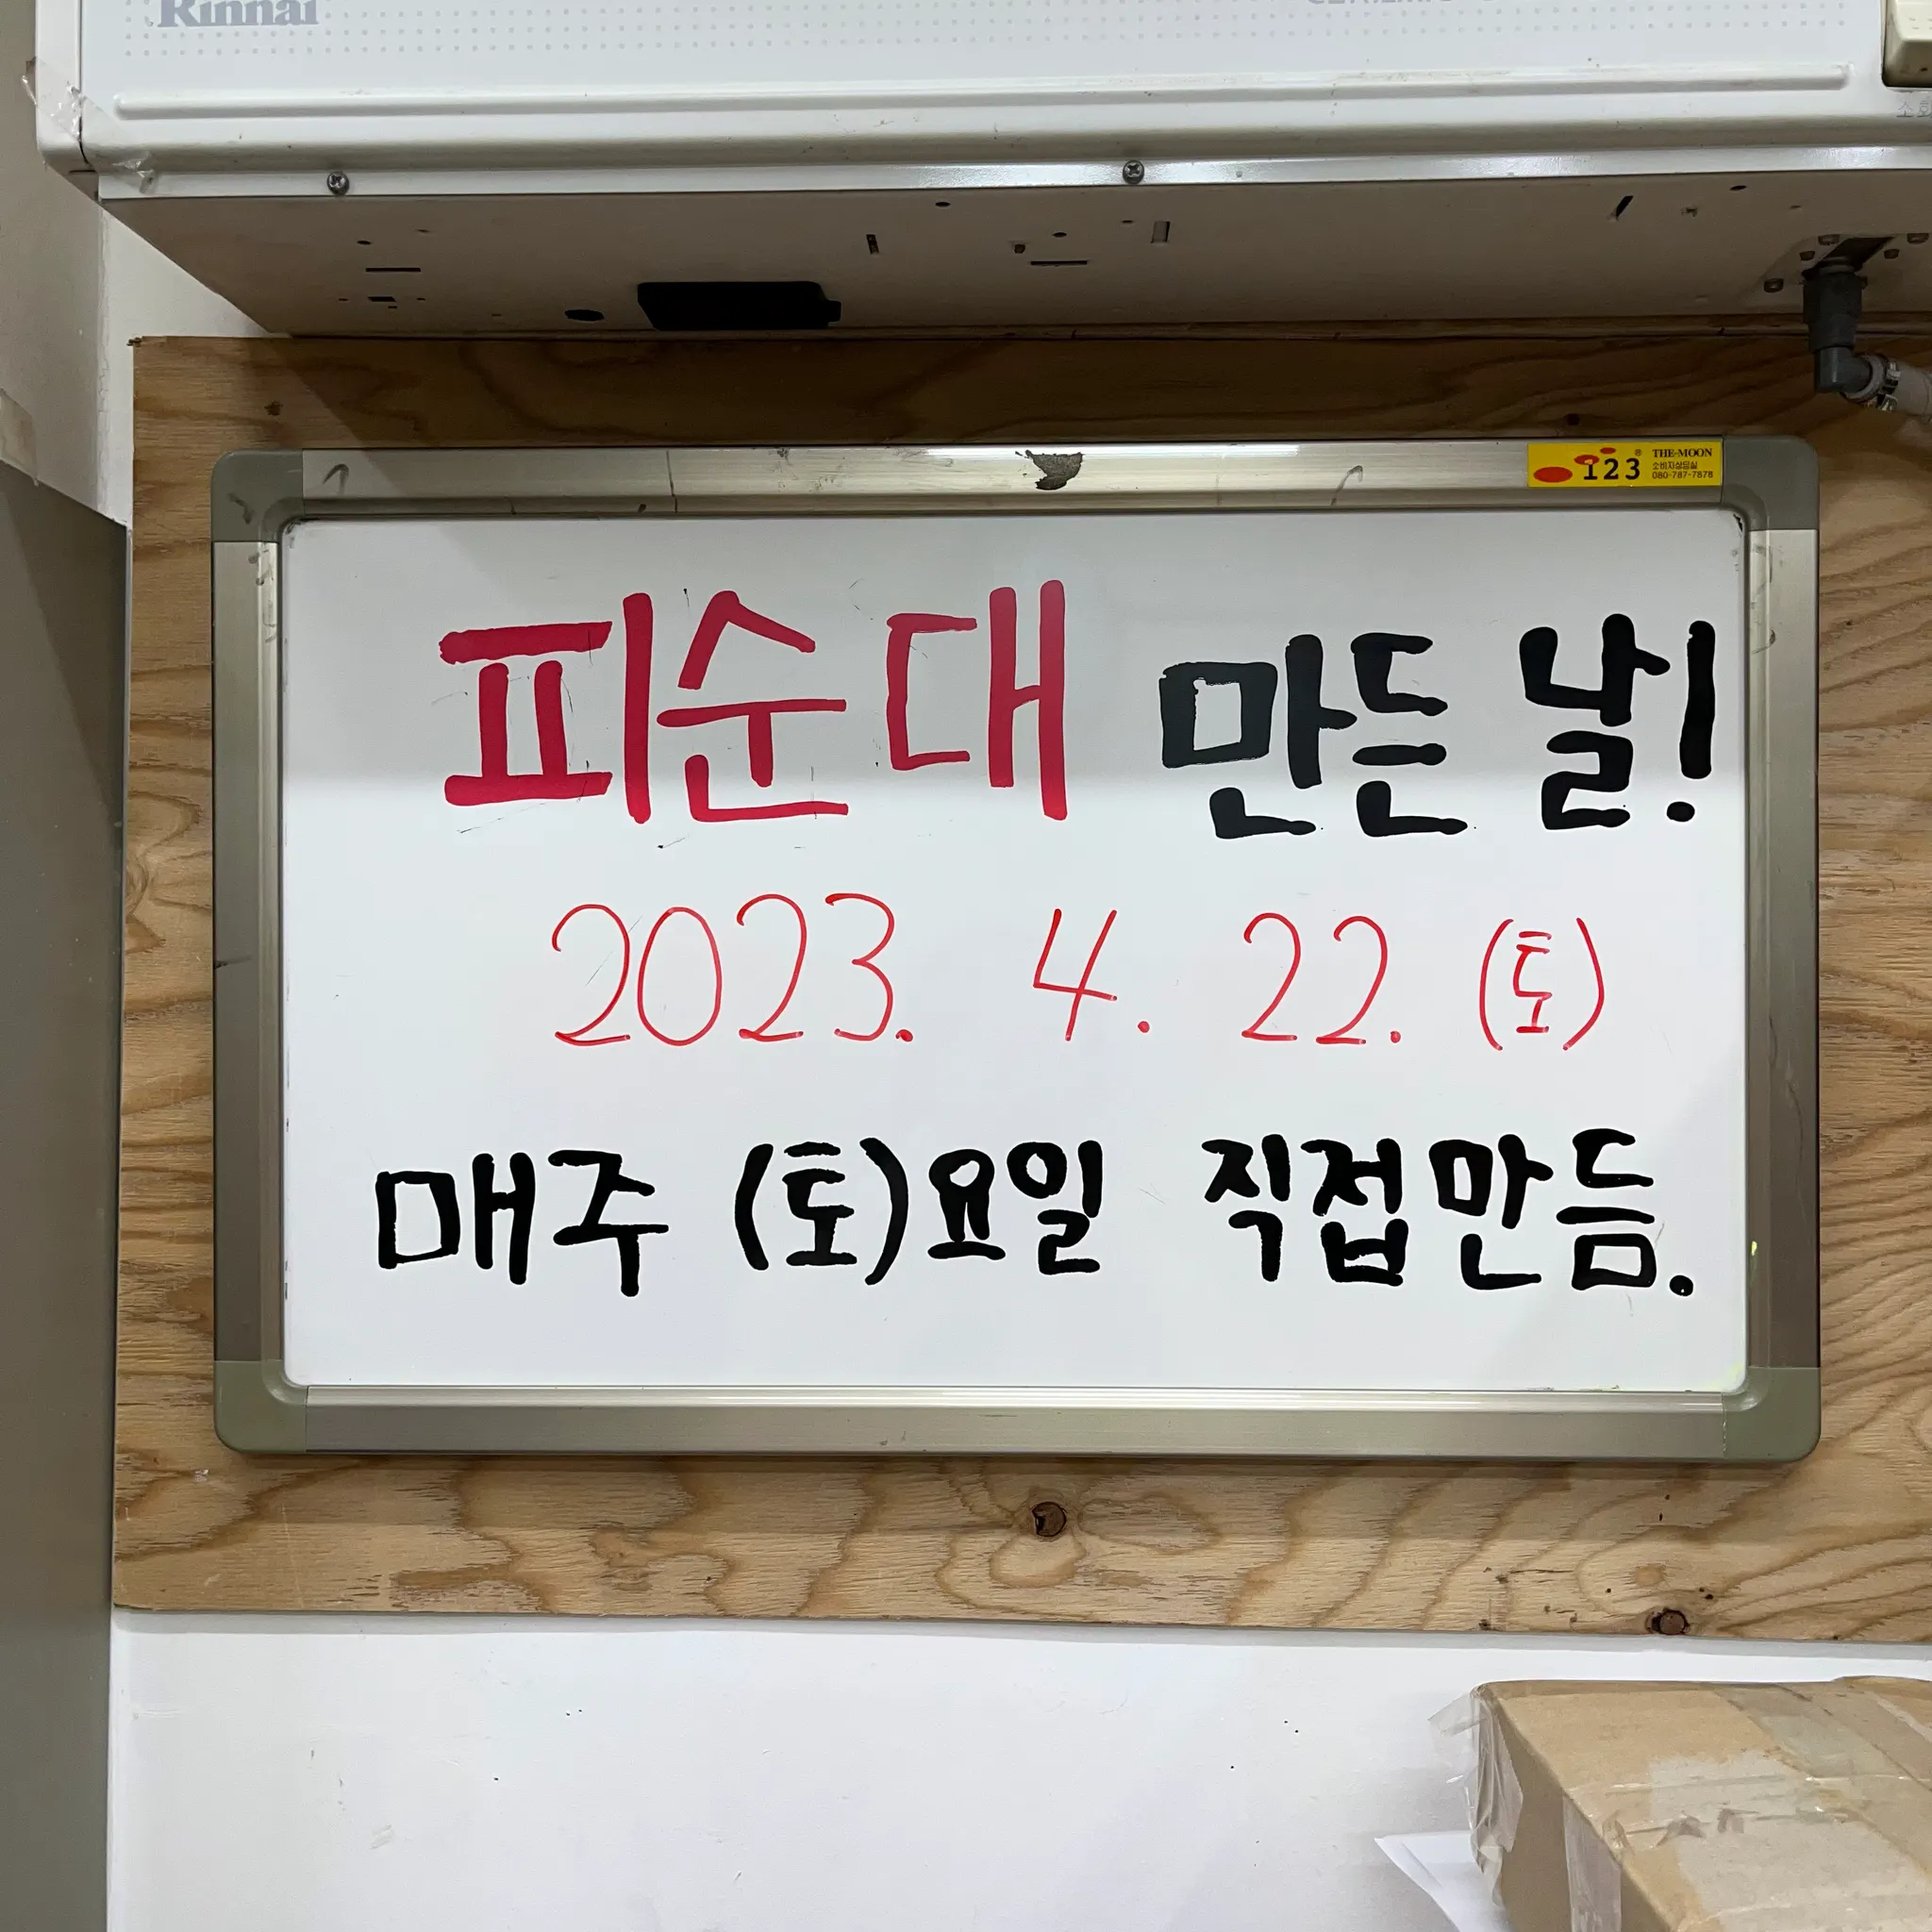 Rinnai
123
THE-MOON
소비자상담실
080-787-7878
피순대 만든 날!
2023. 4. 22. (토)
매주 (토)요일 직접만듬.